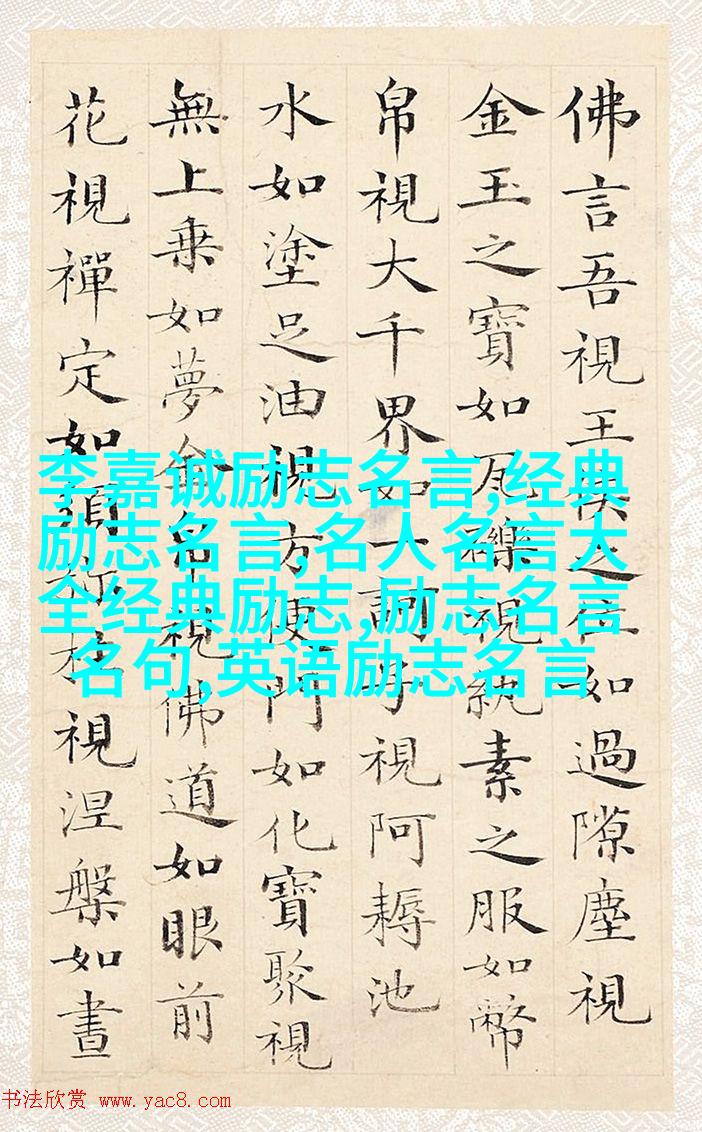 佛言吾視王侯之位如過隙塵視
金玉之寶如瓦礫視紈素之服如幣
帛視大千界如一訶子視阿耨池
水如塗足油視方便門如化寶聚視
無上乗如夢金帛視佛道如眼前
花視禪定如須柱視涅槃如晝
李嘉诚励志名言,经典
励志名言,名人名言大
全经典励志,励志名言
名句,英语励志名言
书法欣赏 www.yac8.com